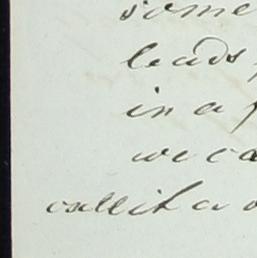 some
leads
in a
we ca
call it a